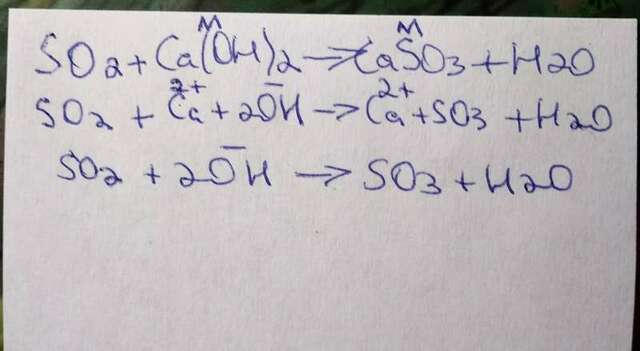 SO₂ + Ca(OH)₂ → CaSO₃ + H₂O
SO₂ + Ca²⁺ + 2OH⁻ → Ca²⁺ + SO₃ + H₂O
SO₂ + 2OH⁻ → SO₃ + H₂O